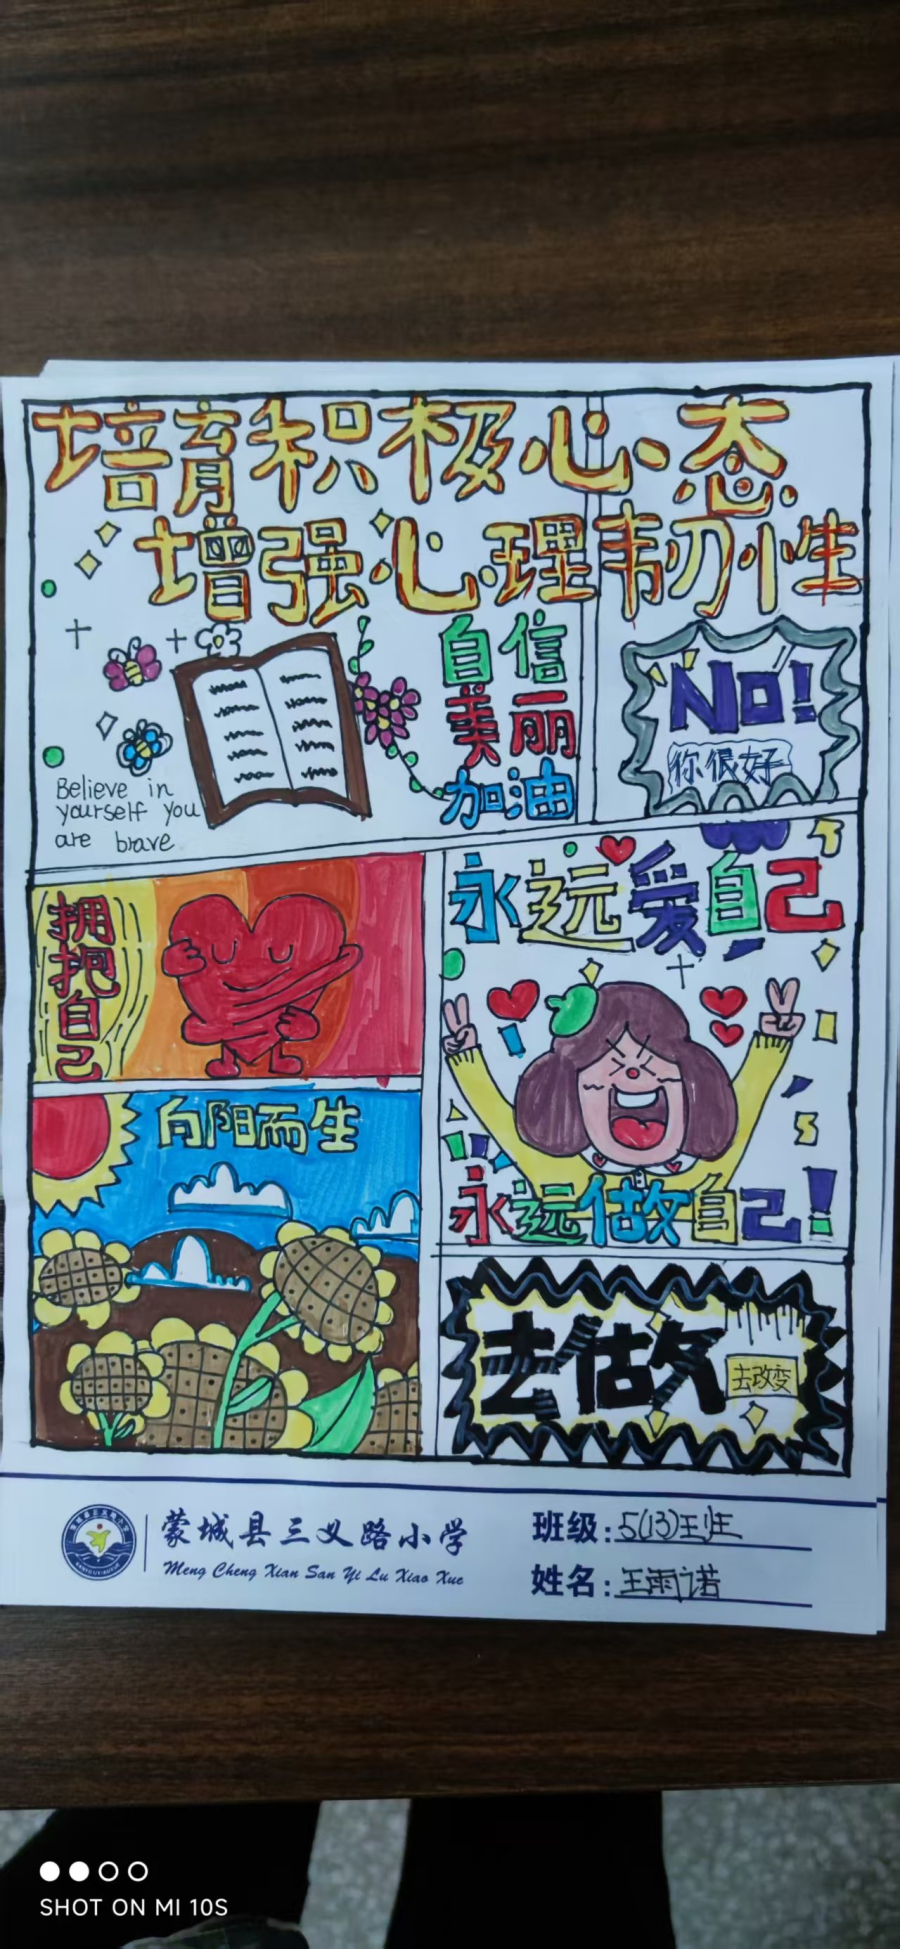 培育积极心态
增强心理韧性
自信
美丽
加油
Believe in
yourself you
are brave
No!
你很好
拥抱自己
永远爱自己
永远做自己!
向阳而生
去做
去改变
蒙城县三义路小学
Meng Cheng Xian San Yi Lu Xiao Xue
班级:5(13)班
姓名:王雨诺
SHOT ON MI 10S